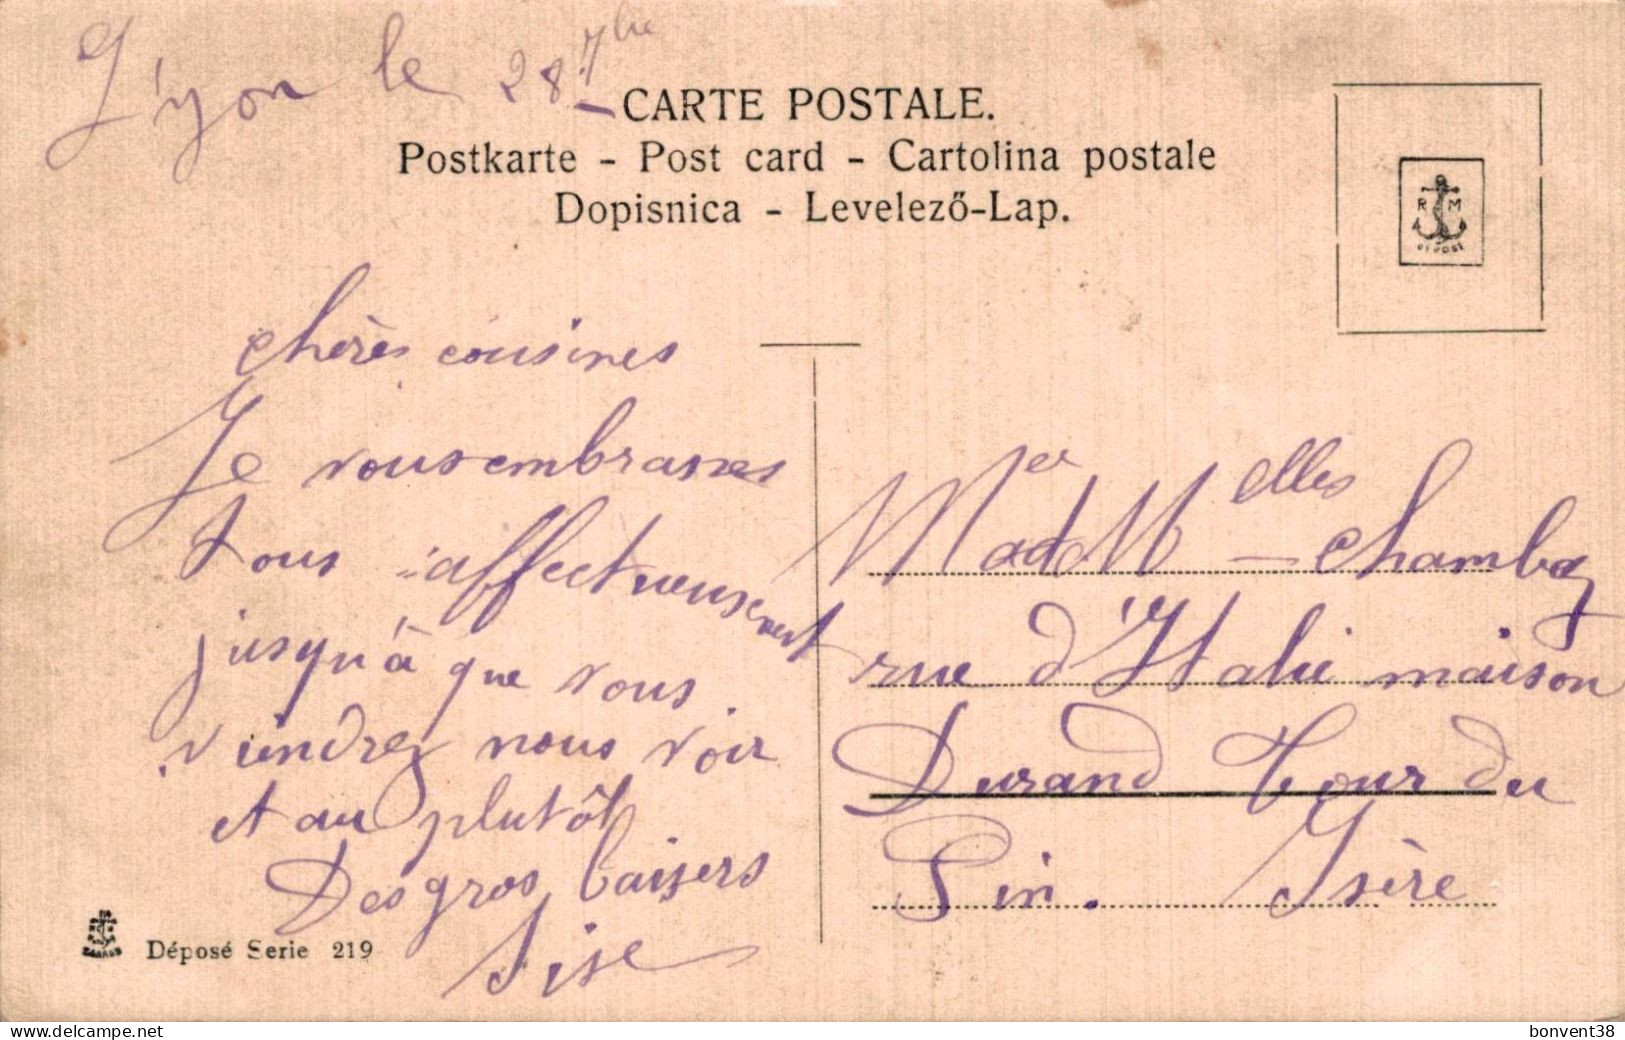 Lyon le 28 7bre
CARTE POSTALE.
Postkarte - Post card - Cartolina postale
Dopisnica - Levelező-Lap.
R M
DEPOSE
chères cousines
Je vous embrasses
tous affectueusement
jusqu'à que vous
viendrez nous voir
et au plutôt
Des gros baisers
Melles
rue d'Italie maison
Durand Tour du
Pin. Isère
Déposé Serie 219
www.delcampe.net
bonvent38